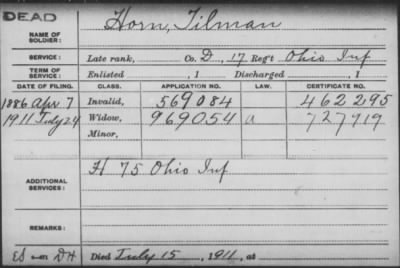 DEAD
NAME OF SOLDIER: Horn, Tilman
SERVICE: Late rank, Co. D, 17 Reg't Ohio Inf
TERM OF SERVICE: Enlisted , 1 Discharged , 1
DATE OF FILING. CLASS. APPLICATION NO. LAW. CERTIFICATE NO.
1886 Apr 7 Invalid, 569084 462295
1911 July 24 Widow, 969054 a 727919
Minor,
ADDITIONAL SERVICES: H 75 Ohio Inf
REMARKS:
Died July 15, 1911, at